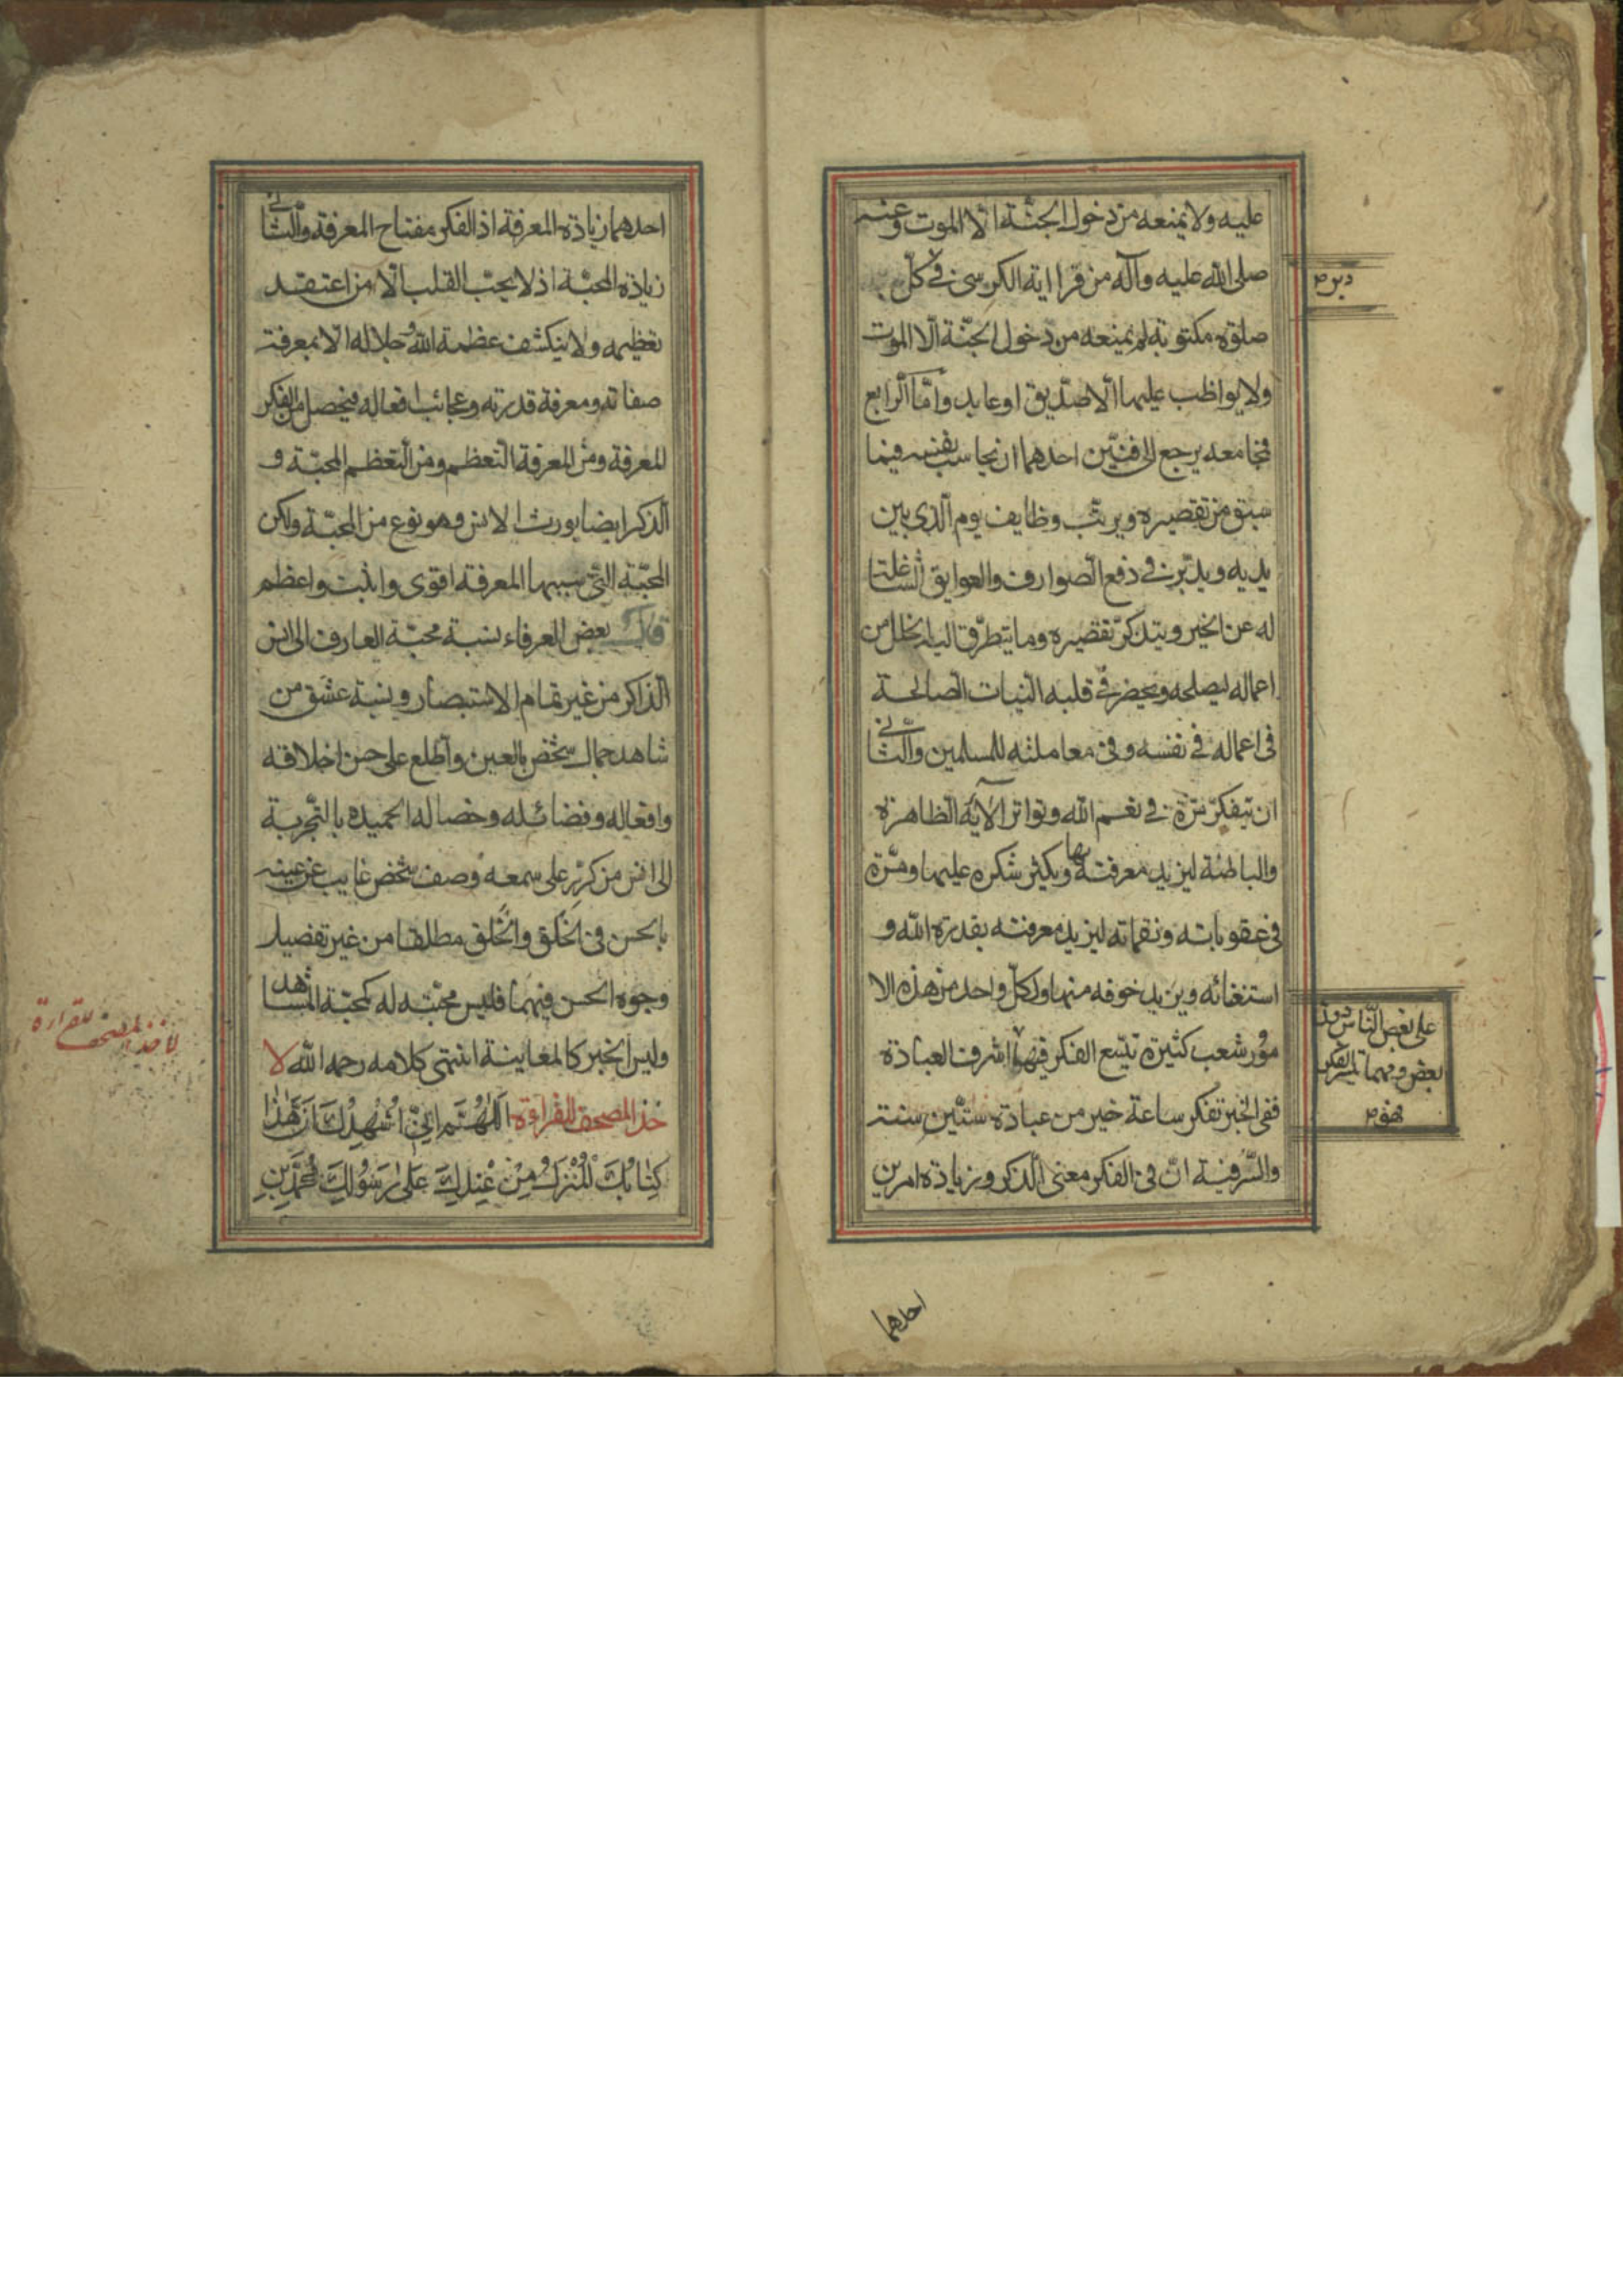 عليه ولا يمنعه من دخول الجنّة الّا الموت وعنه
صلى الله عليه وآله من قرا اية الكرسى فى كلّ
دبر م
صلوة مكتوبة لم يمنعه من دخول الجنّة الّا الموت
ولا يواظب عليها الّا صدّيق او عابد وامّا الرّابع
فجامعه يرجع الى فنّين احدهما ان يحاسب نفسه فيما
سبق من تقصيره ويرتّب وظايف يوم الّذى بين
يديه ويدبّر فى دفع الصّوارف والعوايق الشّاغلة
له عن الخير ويتذكّر تقصيره وما يتطرّق اليه الخلل من
اعماله ليصلحه ويحضر فى قلبه النّيات الصّالحة
فى اعماله فى نفسه وفى معاملته للمسلمين والثّانى
ان يتفكّر مرّة فى نعم الله وتواتر الآية الظاهرة
والباطنة ليزيد معرفته بها ويكثر شكره عليها ومرّة
فى عقوباته ونقماته ليزيد معرفته بقدرة الله و
استغنائه ويزيد خوفه منها ولكلّ واحد من هذه الا
مور شعب كثيرة يتّسع الفكر فيها
على بعض النّاس دون
بعض ومهما تيسّر الفكر
فهو م
اشرف العبادة
ففى الخبر تفكر ساعة خير من عبادة ستّين سنة
والسّرّ فيه انّ فى الفكر معنى الّذكر وزيادة امرين
احدهما
احدهما زيادة المعرفة اذ الفكر مفتاح المعرفة والثّانى
زيادة المحبّة اذ لا يحبّ القلب الّا من اعتقد
تعظيمه ولا ينكشف عظمة الله وجلاله الّا بمعرفة
صفاته ومعرفة قدرته وعجائب افعاله فيحصل من الفكر
المعرفة ومن المعرفة التعظيم ومن التعظيم المحبّة و
الّذكر ايضا يورث الانس وهو نوع من المحبّة ولكن
المحبّة الّتى سببها المعرفة اقوى واثبت واعظم
قال بعض العرفاء نسبة محبّة العارف الى انس
الّذاكر من غير تمام الاستبصار ونسبة عشق من
شاهد جمال شخص بالعين واطّلع على حسن اخلاقه
وافعاله وفضائله وخصاله الحميدة بالتّجربة
الى انس من كرّر على سمعه وصف شخص غايب عن عينه
بالحسن فى الخَلق والخُلق مطلقا من غير تفصيل
وجوه الحسن فيهما فليس محبّته له كمحبّة المشاهد
وليس الخبر كالمعاينة انتهى كلامه رحمه الله لا
خذ المصحف للقراءة اَللّٰهُمَّ اِنّى اُشْهِدُكَ اَنَّ هٰذٰا
كِتٰابُكَ الْمُنْزَلُ مِنْ عِنْدِكَ عَلىٰ رَسُولِكَ مُحَمَّدِبْنِ
لاخذ المصحف للقراءة